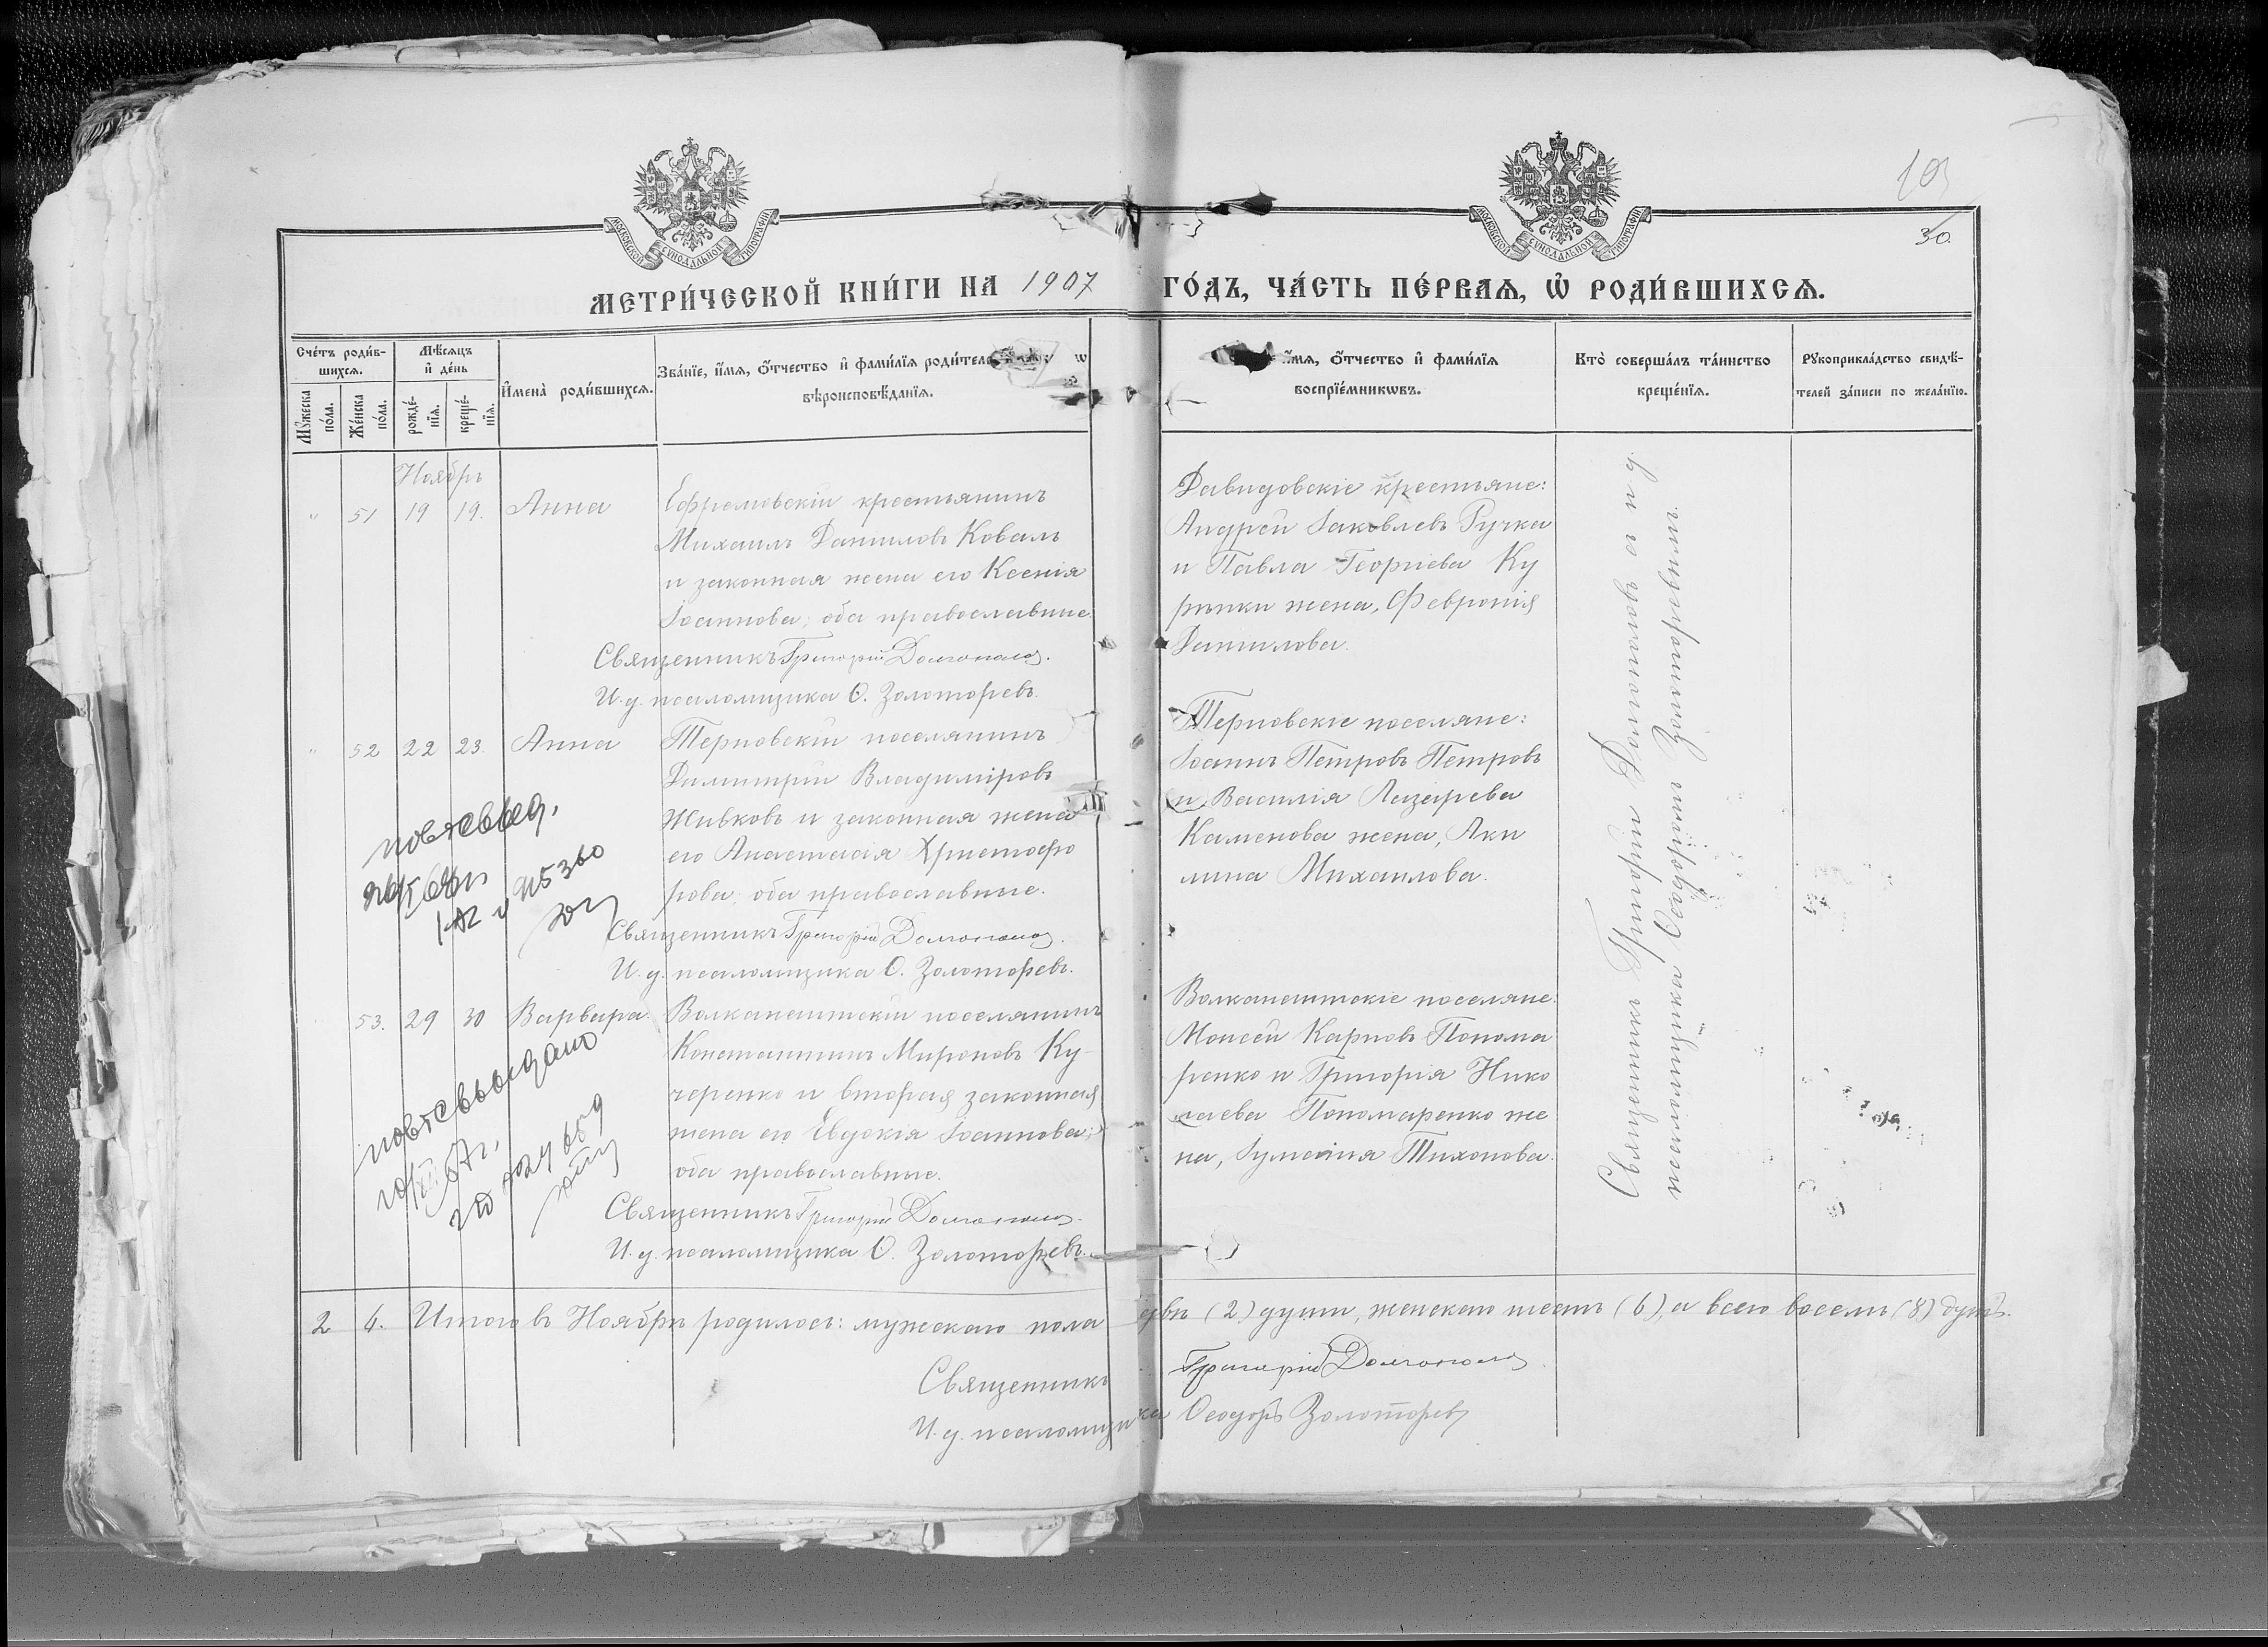 103
30
МОСКОВСКОЙ СѴНОДАЛЬНОЙ ТИПОГРАФІИ
МОСКОВСКОЙ СѴНОДАЛЬНОЙ ТИПОГРАФІИ
МЕТРИ́ЧЕСКОЙ КНИ́ГИ НА 1907 ГО́ДЪ, ЧА́СТЬ ПЕ́РВАЯ, Ѡ РОДИ́ВШИХСЯ.
Сче́тъ роди́в-
шихся.
Мꙋ́жеска по́ла.
Же́нска по́ла.
Мѣ́сяцъ
и҆ де́нь
рожде́-
нїя.
креще́-
нїя.
И҆мена̀ роди́вшихся.
Зва́нїе, и҆́мя, ѻ҆́тчество и҆ фами́лїя роди́теле
вѣроисповѣ́данїя.
и҆́мя, ѻ҆́тчество и҆ фами́лїя
воспрїе́мникѡвъ.
Кто̀ соверша́лъ та́инство
креще́нїя.
Рꙋкоприкла́дство свидѣ́-
телей за́писи по жела́нїю.
Ноябрь
" 51 19 19. Анна
Ефремовскій крестьянинъ
Михаилъ Даниловъ Коваль
и законная жена его Ксенія
Іоаннова; оба православные.
Священникъ Григорій Долгополовъ.
И. д. псаломщика Ѳ. Золоторевъ.
Давидовскіе крестьяне:
Андрей Іаковлевъ Ручка
и Павла Георгіева Ку
рытки жена, Февронія
Данилова.
" 52 22 23. Анна
Терновскій поселянинъ
Димитрій Владиміровъ
Живковъ и законная жена
его Анастасія Христофо
рова; оба православные.
Священникъ Григорій Долгополовъ.
И. д. псаломщика Ѳ. Золоторевъ.
Терновскіе поселяне:
Іоаннъ Петровъ Петровъ
и Василія Лазарева
Каменова жена, Аки
лина Михаилова.
53. 29 30 Варвара.
Волканештскій поселянинъ
Константинъ Мироновъ Ку-
черенко и вторая законная
жена его Евдокія Іоаннова;
оба православные.
Священникъ Григорій Долгополовъ.
И. д. псаломщика Ѳ. Золоторевъ.
Волканештскіе поселяне:
Моисей Карповъ Понома
ренко и Григорія Нико
лаева Пономаренко же
на, Іуліанія Тихонова.
Священникъ Григорій Долгополовъ и и. д.
псаломщика Ѳеодоромъ Золоторевымъ.
2 6. Итого въ Ноябрѣ родилось: мужескаго пола двѣ (2) души, женскаго шесть (6), а всего восемь (8) душъ.
Священникъ Григорій Долгополовъ
И. д. псаломщика Ѳеодоръ Золоторевъ